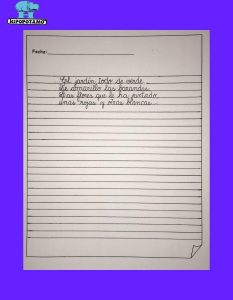 HIPOPÓTAMO
Fecha:
El jardín todo de verde
de amarillo las barandas
las flores que le ha pintado
unas "rojas" y otras blancas.